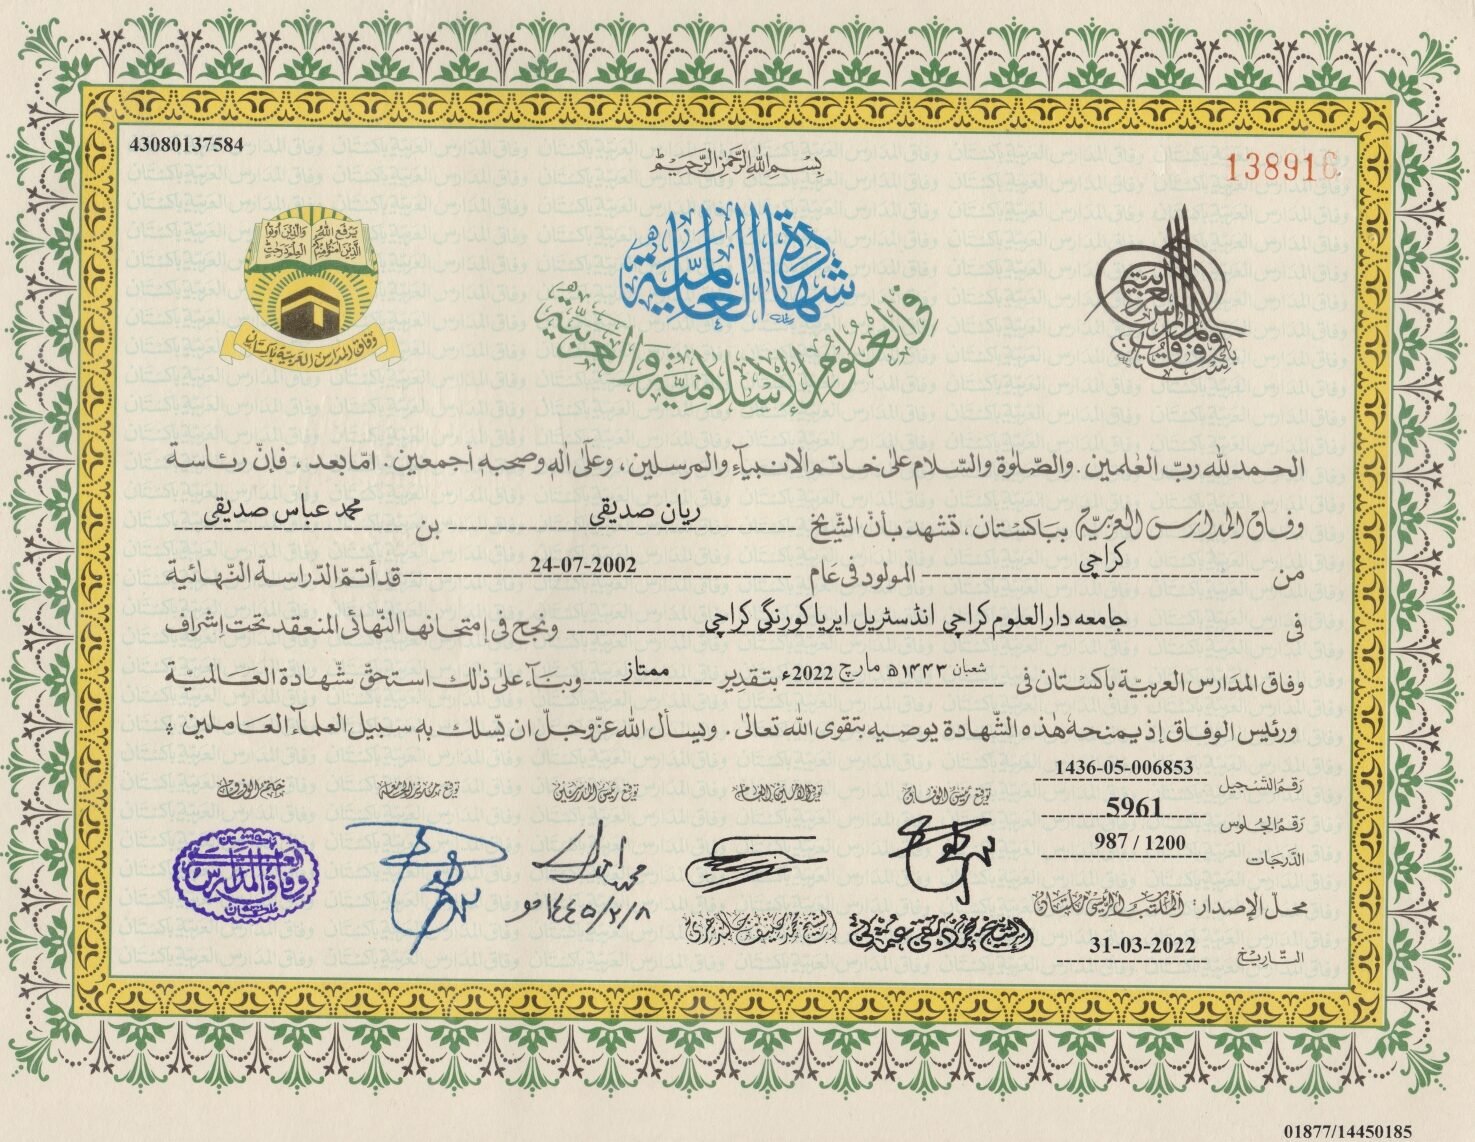 43080137584
138916
بسم الله الرحمن الرحيم
يرفع الله الذين آمنوا منكم والذين أوتوا العلم درجت
وفاق المدارس العربية باكستان
شهادة العالمية
في العلوم الإسلامية والعربية
وفاق المدارس العربية باكستان
الحمد لله رب العلمين. والصلوة والسلام على خاتم الانبياء والمرسلين، وعلى اله وصحبه أجمعين. امّا بعد، فإن رئاسة
وفاق المدارس العربية بباكستان، تشهد بأن الشيخ ريان صديقي بن محمد عباس صديقي
من كراچي المولود في عام 24-07-2002 قد أتمّ الدّراسة النّهائية
في جامعه دار العلوم كراچي انڈسٹریل ایریا کورنگی کراچی ونجح في إمتحانها النّهائي المنعقد تحت إشراف
وفاق المدارس العربيّة باكستان في شعبان ۱۴۴۳ھ مارچ 2022ء بتقدير ممتاز وبناء على ذلك استحقّ شهادة العالميّة
ورئيس الوفاق إذ يمنحه هذه الشّهادة يوصيه بتقوى الله تعالى. ويسأل الله عزّ وجلّ ان يسلك به سبيل العلماء العاملين
رقم التسجيل 1436-05-006853
رقم الجلوس 5961
الدّرجات 987 / 1200
محلّ الإصدار: المكتب الرئيسي ملتان
التّاريخ 31-03-2022
توقيع رئيس الوفاق
توقيع الأمين العام
توقيع رئيس المدرسة
ختم الوفاق
الشيخ محمد تقي عثماني
الشيخ محمد حنيف جالندهري
١٤٤٥/٢/٨
01877/14450185